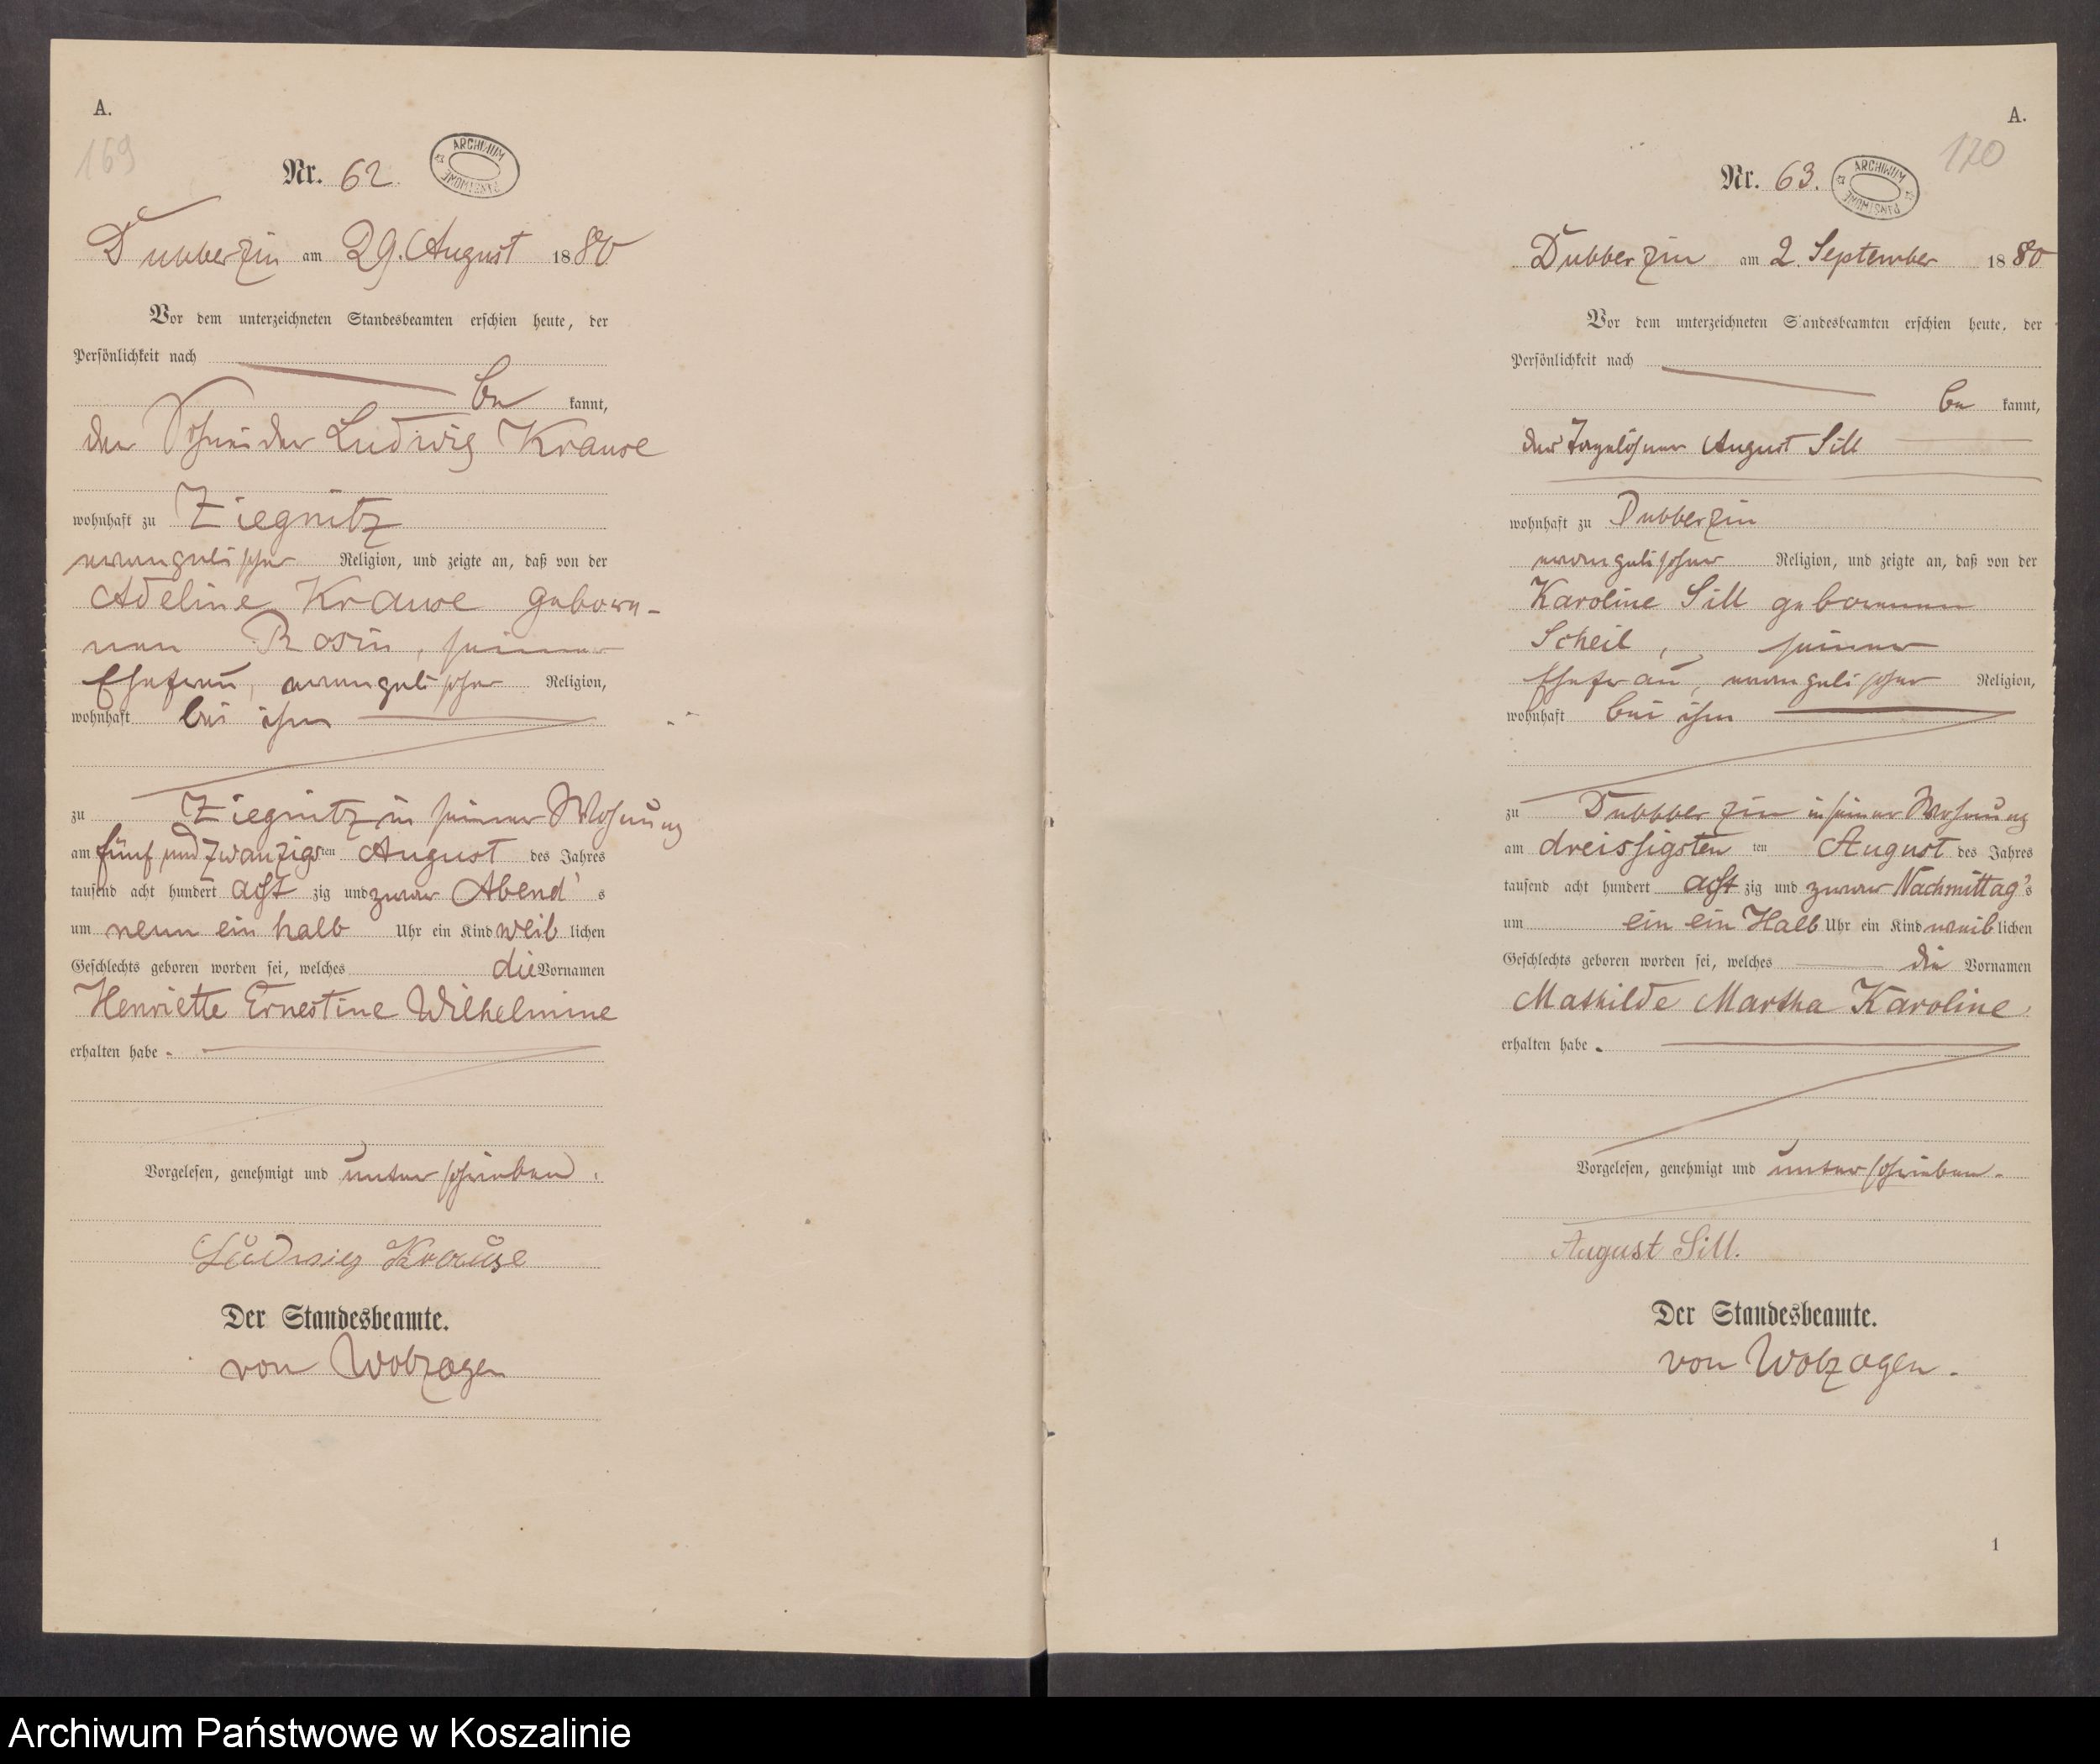 A.
169
Nr. 62.
ARCHIWUM PAŃSTWOWE
Dubberzin am 29. August 1880
Vor dem unterzeichneten Standesbeamten erschien heute, der
Persönlichkeit nach
be kannt,
der Schneider Ludwig Krause
wohnhaft zu Ziegnitz
evangelischer Religion, und zeigte an, daß von der
Adeline Krause gebore-
nen Rosin, seiner
Ehefrau, evangelischer Religion,
wohnhaft bei ihm
zu Ziegnitz in seiner Wohnung
am fünf und zwanzigsten August des Jahres
tausend acht hundert acht zig und zwar Abend's
um neun ein halb Uhr ein Kind weib lichen
Geschlechts geboren worden sei, welches die Vornamen
Henriette Ernestine Wilhelmine
erhalten habe.
Vorgelesen, genehmigt und unterschrieben.
Ludwig Krause
Der Standesbeamte.
von Wolzogen
A.
170
Nr. 63.
ARCHIWUM PAŃSTWOWE
Dubberzin am 2. September 1880
Vor dem unterzeichneten Standesbeamten erschien heute, der
Persönlichkeit nach
be kannt,
der Tagelöhner August Sill
wohnhaft zu Dubberzin
evangelischer Religion, und zeigte an, daß von der
Karoline Sill geborenen
Scheil, seiner
Ehefrau, evangelischer Religion,
wohnhaft bei ihm
zu Dubbberzin in seiner Wohnung
am dreissigsten ten August des Jahres
tausend acht hundert acht zig und zwar Nachmittag's
um ein ein Halb Uhr ein Kind weib lichen
Geschlechts geboren worden sei, welches die Vornamen
Mathilde Martha Karoline
erhalten habe.
Vorgelesen, genehmigt und unterschrieben.
August Sill.
Der Standesbeamte.
von Wolzogen.
1
Archiwum Państwowe w Koszalinie